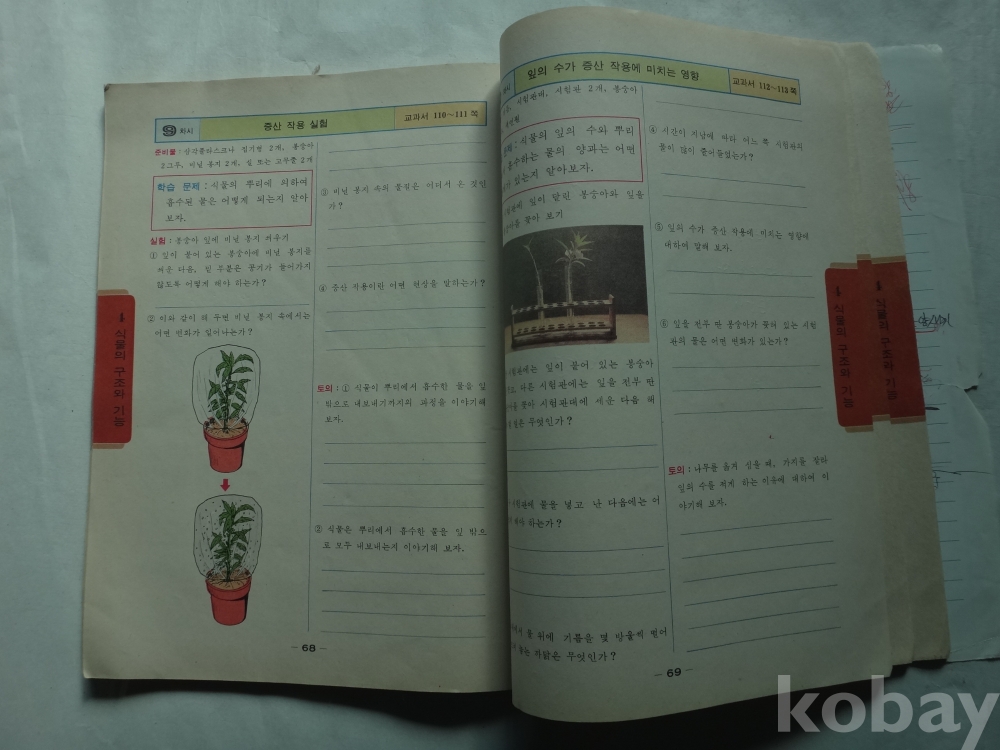 9 차시
증산 작용 실험
교과서 110~111 쪽
준비물 : 삼각플라스크나 집기병 2개, 봉숭아
2그루, 비닐 봉지 2개, 실 또는 고무줄 2개
학습 문제 : 식물의 뿌리에 의하여
흡수된 물은 어떻게 되는지 알아
보자.
실험 : 봉숭아 잎에 비닐 봉지 씌우기
① 잎이 붙어 있는 봉숭아에 비닐 봉지를
씌운 다음, 밑 부분은 공기가 들어가지
않도록 어떻게 해야 하는가?
② 이와 같이 해 두면 비닐 봉지 속에서는
어떤 변화가 일어나는가?
③ 비닐 봉지 속의 물질은 어디서 온 것인
가?
④ 증산 작용이란 어떤 현상을 말하는가?
토의 : ① 식물이 뿌리에서 흡수한 물을 잎
밖으로 내보내기까지의 과정을 이야기해
보자.
② 식물은 뿌리에서 흡수한 물을 잎 밖으
로 모두 내보내는지 이야기해 보자.
4 식물의 구조와 기능
- 68 -
차시
잎의 수가 증산 작용에 미치는 영향
교과서 112~113 쪽
시험관대, 시험관 2개, 봉숭아
식물의 잎의 수와 뿌리
흡수하는 물의 양과는 어떤
있는지 알아보자.
시험관에 잎이 달린 봉숭아와 잎을
꽂아 보기
시험관에는 잎이 붙어 있는 봉숭아
다른 시험관에는 잎을 전부 딴
꽂아 시험관대에 세운 다음 해
일은 무엇인가?
시험관에 물을 넣고 난 다음에는 어
해야 하는가?
물 위에 기름을 몇 방울씩 떨어
놓는 까닭은 무엇인가?
④ 시간이 지남에 따라 어느 쪽 시험관의
물이 많이 줄어들었는가?
⑤ 잎의 수가 증산 작용에 미치는 영향에
대하여 말해 보자.
⑥ 잎을 전부 딴 봉숭아가 꽂혀 있는 시험
관의 물은 어떤 변화가 있는가?
토의 : 나무를 옮겨 심을 때, 가지를 잘라
잎의 수를 적게 하는 이유에 대하여 이
야기해 보자.
- 69 -
4 식물의 구조와 기능
4 식물의 구조와 기능
kobay